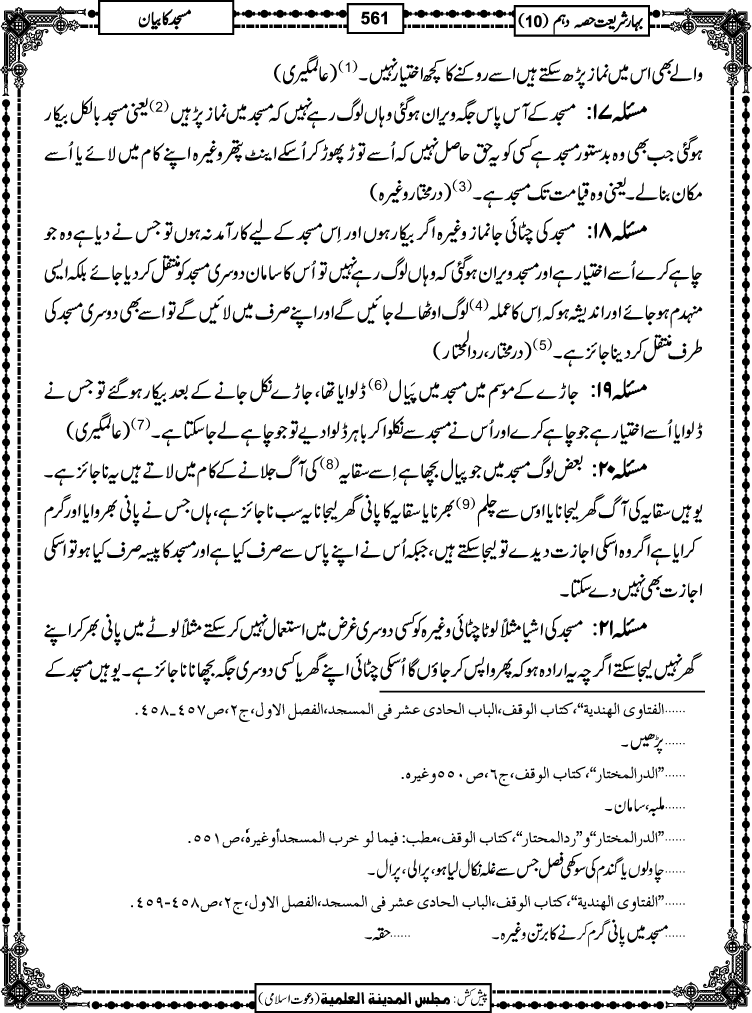 بہار شریعت حصہ دہم (10)
561
مسجد کا بیان
والے بھی اس میں نماز پڑھ سکتے ہیں اسے روکنے کا کچھ اختیار نہیں۔(1) (عالمگیری)
مسئلہ ۱۷: مسجد کے آس پاس جگہ ویران ہوگئی وہاں لوگ رہے نہیں کہ مسجد میں نماز پڑہیں (2) یعنی مسجد بالکل بیکار
ہوگئی جب بھی وہ بدستور مسجد ہے کسی کو یہ حق حاصل نہیں کہ اُسے توڑ پھوڑ کر اُسکے اینٹ پتھر وغیرہ اپنے کام میں لائے یا اُسے
مکان بنالے۔ یعنی وہ قیامت تک مسجد ہے۔(3) (درمختار وغیرہ)
مسئلہ ۱۸: مسجد کی چٹائی جانماز وغیرہ اگر بیکار ہوں اور اِس مسجد کے لیے کارآمد نہ ہوں تو جس نے دیا ہے وہ جو
چاہے کرے اُسے اختیار ہے اور مسجد ویران ہوگئی کہ وہاں لوگ رہے نہیں تو اُس کا سامان دوسری مسجد کو منتقل کردیا جائے بلکہ ایسی
منہدم ہوجائے اور اندیشہ ہو کہ اِس کا عملہ (4) لوگ اوٹھالے جائیں گے اور اپنے صرف میں لائیں گے تو اسے بھی دوسری مسجد کی
طرف منتقل کردینا جائز ہے۔(5) (درمختار، ردالمحتار)
مسئلہ ۱۹: جاڑے کے موسم میں مسجد میں پَیال (6) ڈلوایا تھا، جاڑے نکل جانے کے بعد بیکار ہوگئے تو جس نے
ڈلوایا اُسے اختیار ہے جو چاہے کرے اور اُس نے مسجد سے نکلوا کر باہر ڈلوا دیے تو جو چاہے لے جاسکتا ہے۔(7) (عالمگیری)
مسئلہ ۲۰: بعض لوگ مسجد میں جو پیال بچھا ہے اِسے سقایہ (8) کی آگ جلانے کے کام میں لاتے ہیں یہ ناجائز ہے۔
یوہیں سقایہ کی آگ گھر لیجانا یا اوس سے چلم (9) بھرنا یا سقایہ کا پانی گھر لیجانا یہ سب ناجائز ہے، ہاں جس نے پانی بھروایا اور گرم
کرایا ہے اگر وہ اسکی اجازت دیدے تو لیجاسکتے ہیں، جبکہ اُس نے اپنے پاس سے صرف کیا ہے اور مسجد کا پیسہ صرف کیا ہو تو اسکی
اجازت بھی نہیں دے سکتا۔
مسئلہ ۲۱: مسجد کی اشیا مثلاً لوٹا چٹائی وغیرہ کو کسی دوسری غرض میں استعمال نہیں کرسکتے مثلاً لوٹے میں پانی بھر کر اپنے
گھر نہیں لیجاسکتے اگرچہ یہ ارادہ ہو کہ پھر واپس کر جاؤں گا اُسکی چٹائی اپنے گھر یا کسی دوسری جگہ بچھانا ناجائز ہے۔ یوہیں مسجد کے
......الفتاوی الهندیة“، کتاب الوقف، الباب الحادی عشر فی المسجد، الفصل الاول، ج٢، ص٤٥٧_٤٥٨.
......پڑھیں۔
......”الدرالمختار“، کتاب الوقف، ج٦، ص٥٥٠ وغیرہ.
......ملبہ، سامان۔
......”الدرالمختار“ و ”ردالمحتار“، کتاب الوقف، مطلب: فیما لو خرب المسجد أو غیرہ، ص٥٥١.
......چاولوں یا گندم کی سوکھی فصل جس سے غلہ نکال لیا ہو، پرالی، پرال۔
......”الفتاوی الهندیة“، کتاب الوقف، الباب الحادی عشر فی المسجد، الفصل الاول، ج٢، ص٤٥٨-٤٥٩.
......مسجد میں پانی گرم کرنے کا برتن وغیرہ۔ ......حقہ۔
پیش کش: مجلس المدینة العلمیة (دعوت اسلامی)